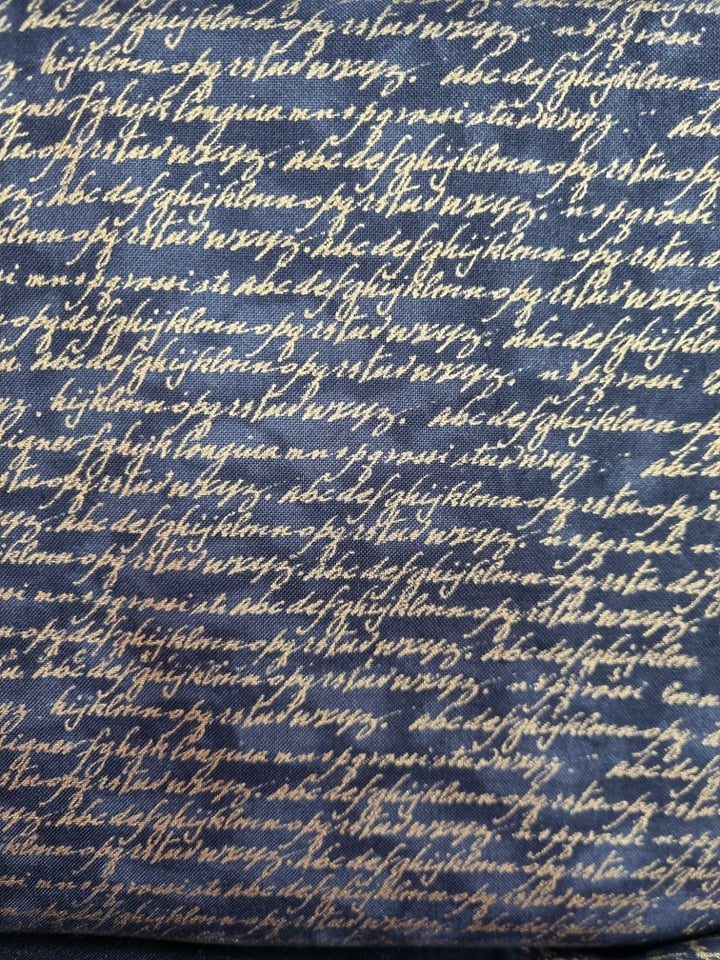 abc defghijklmn opqrstuvwxyz. nopqrossi
z. hijklmn opqrstuvwxyz. abcdefghijklmno
igner fghijk longiura mnopqrossi stuvwxyz. abc
tu opqrstuvwxyz. abcdefghijklmn opqrstu op
yz. abc defghijklmn opqrstuvwxyz. nopqrossi
klmn opqrstuvwxyz. abc defghijklmn opqrstu. d
si mnopqrossi sts abc defghijklmn opqrstuvwxyz
opq defghijklmn opqrstuvwxyz. abcdefghijklmn
u. abc defghijklmn opqrstuvwxyz. nopqrossi
yz. hijklmn opqrstuvwxyz. abc defghijklmn op
igner fghijk longiura mnopqrossi stuvwxyz. abcd
tu opqrstuvwxyz. abc defghijklmn opqrstu opq
yz. abc defghijklmn opqrstuvwxyz. nopqrossi n
klmn opqrstuvwxyz. abc defghijklmn opqrstu def
si mnopqrossi sts abc defghijklmn opqrstuvwxyz.
n opq defghijklmn opqrstuvwxyz. abcdefghijklmn
u. abc defghijklmn opqrstuvwxyz. nopqrossi
yz hijklmn opqrstuvwxyz. abcdefghijklmn op
igner fghijk longiura mnopqrossi stuvwxyz abcdef
stu opqrstuvwxyz. abc defghijklmn opqrstu opq
xyz. abc defghijklmn opqrstuvwxyz. nopqrossi
klmn opqrstuvwxyz. abc defghijklmn opqrstu defg
si mnopqrossi sts abc defghijklmn opq